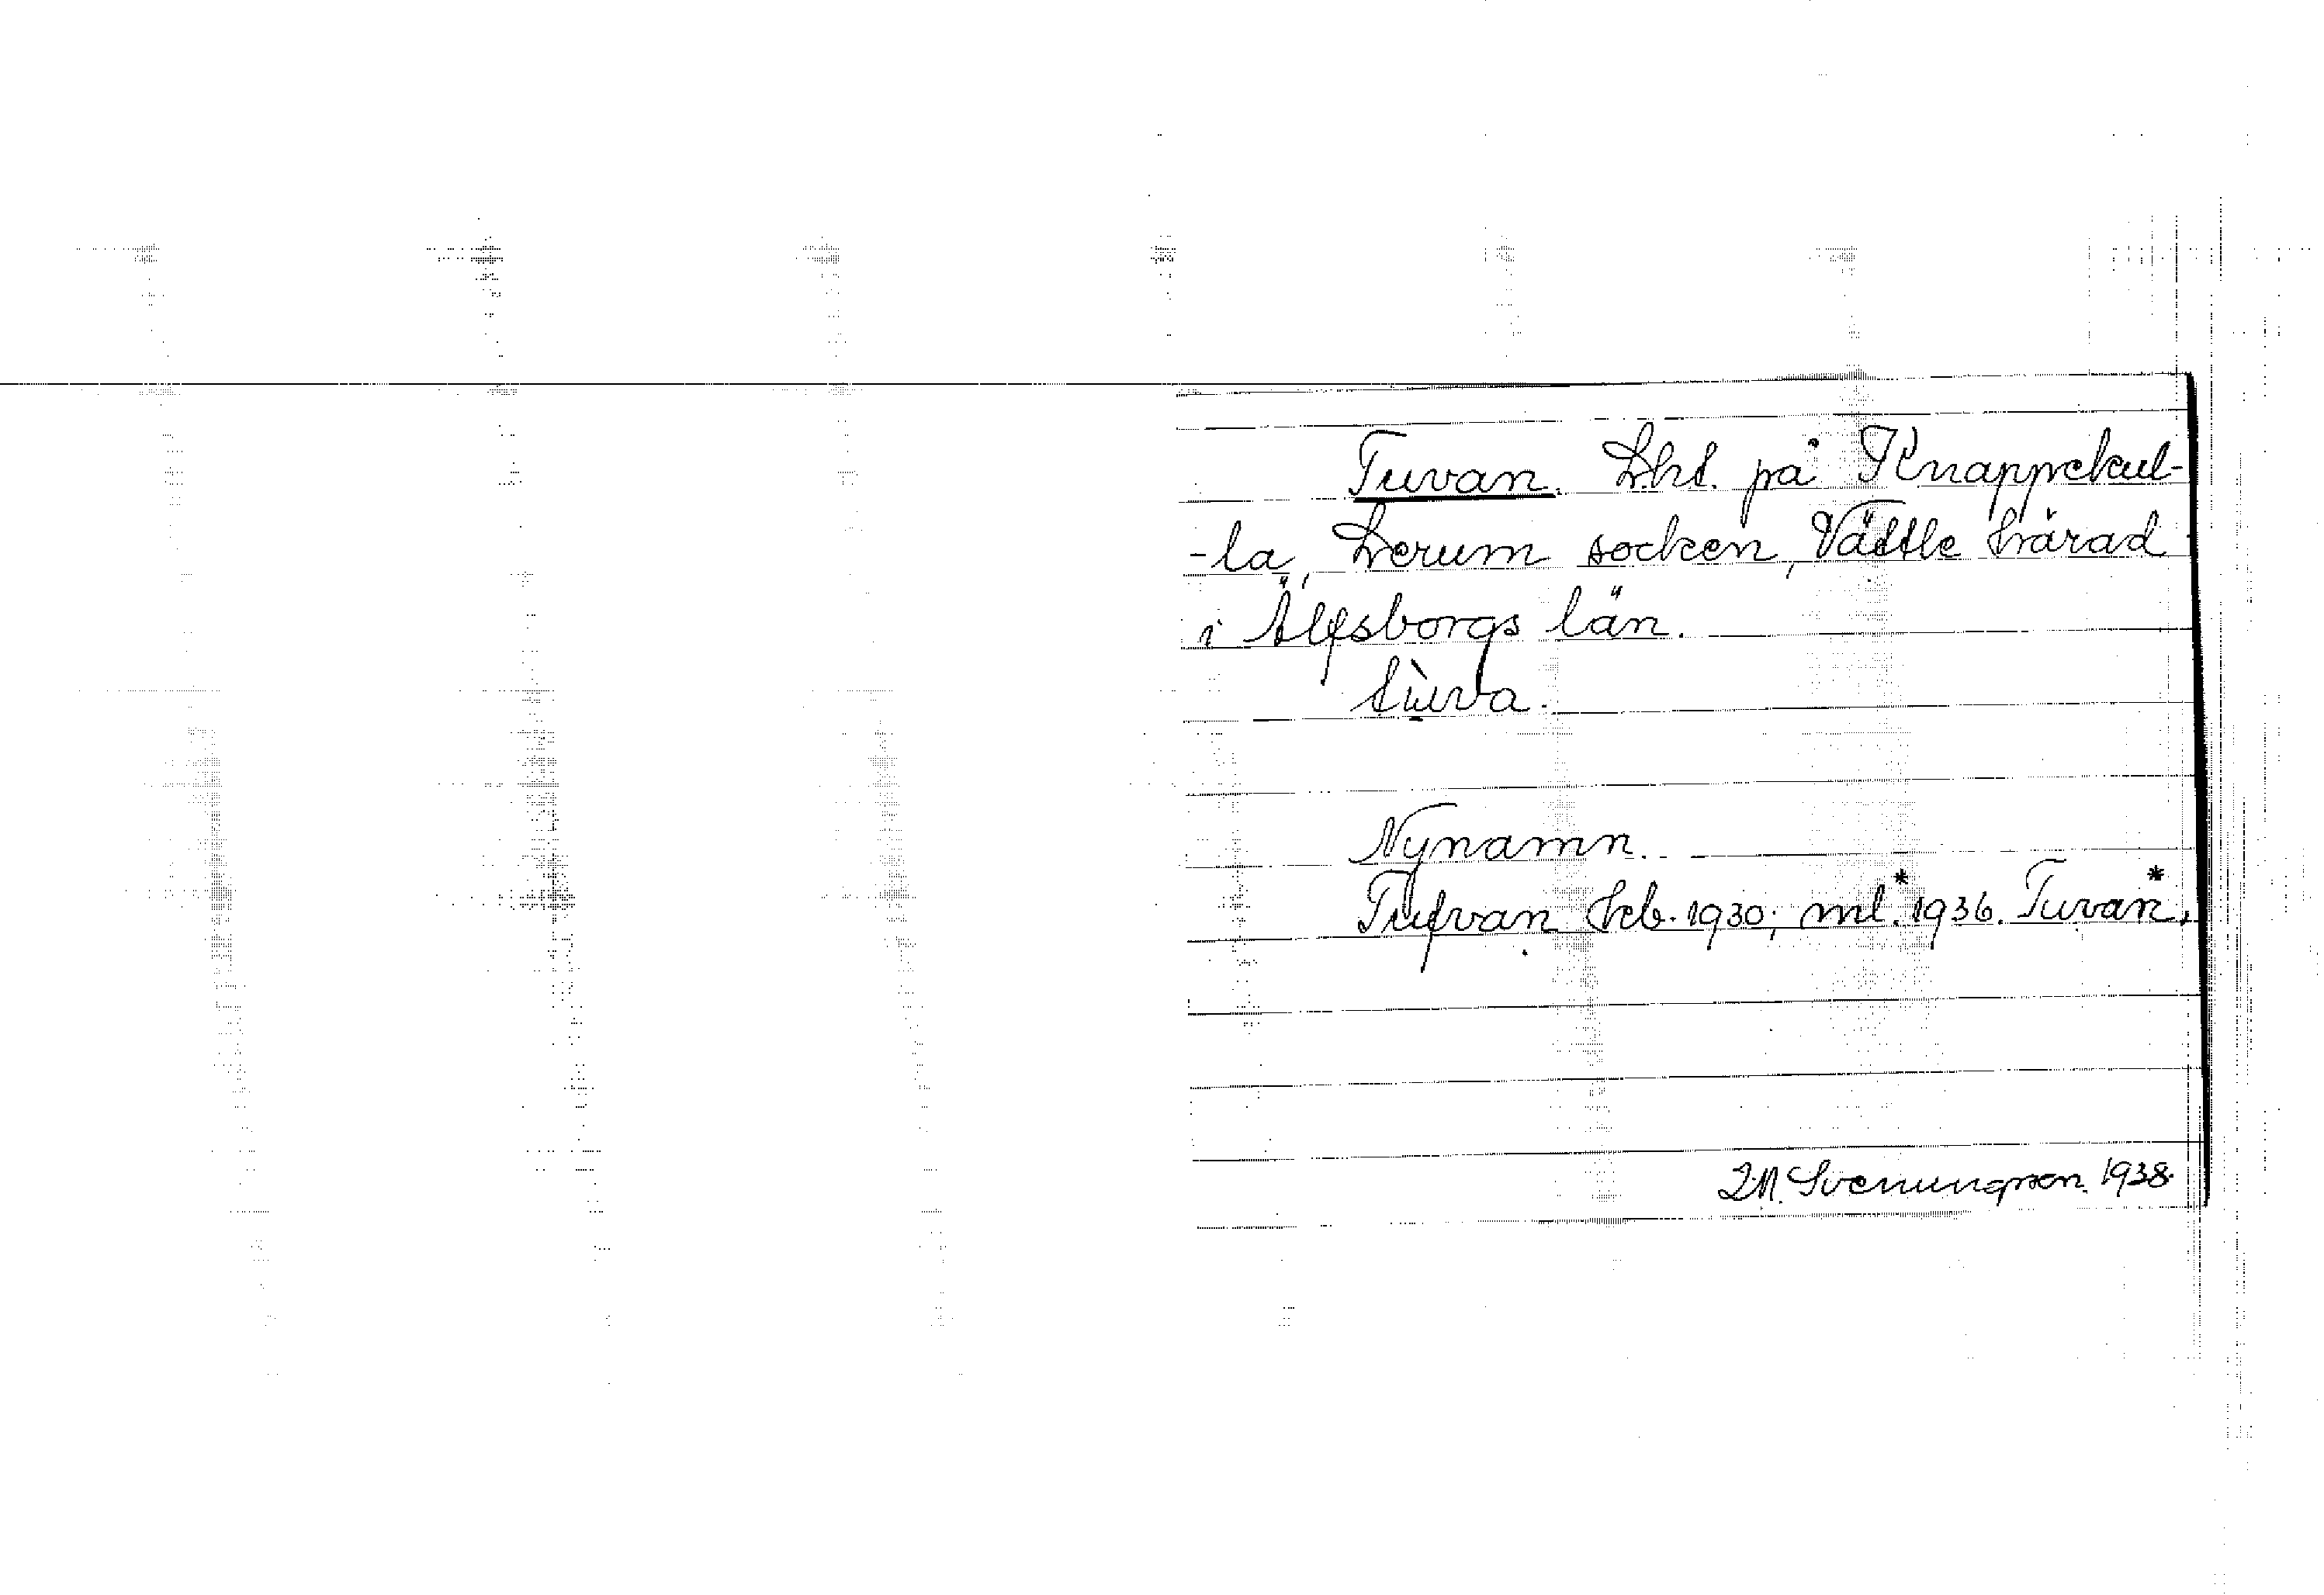 Tuvan. Lht. på Knappekul-
-la, Lerum socken, Vättle härad
i Älfsborgs län.
tùva.
Nynamn.
Tufvan kb. 1930; ml.* 1936. Tuvan*,
I.M. Svenungson. 1938.